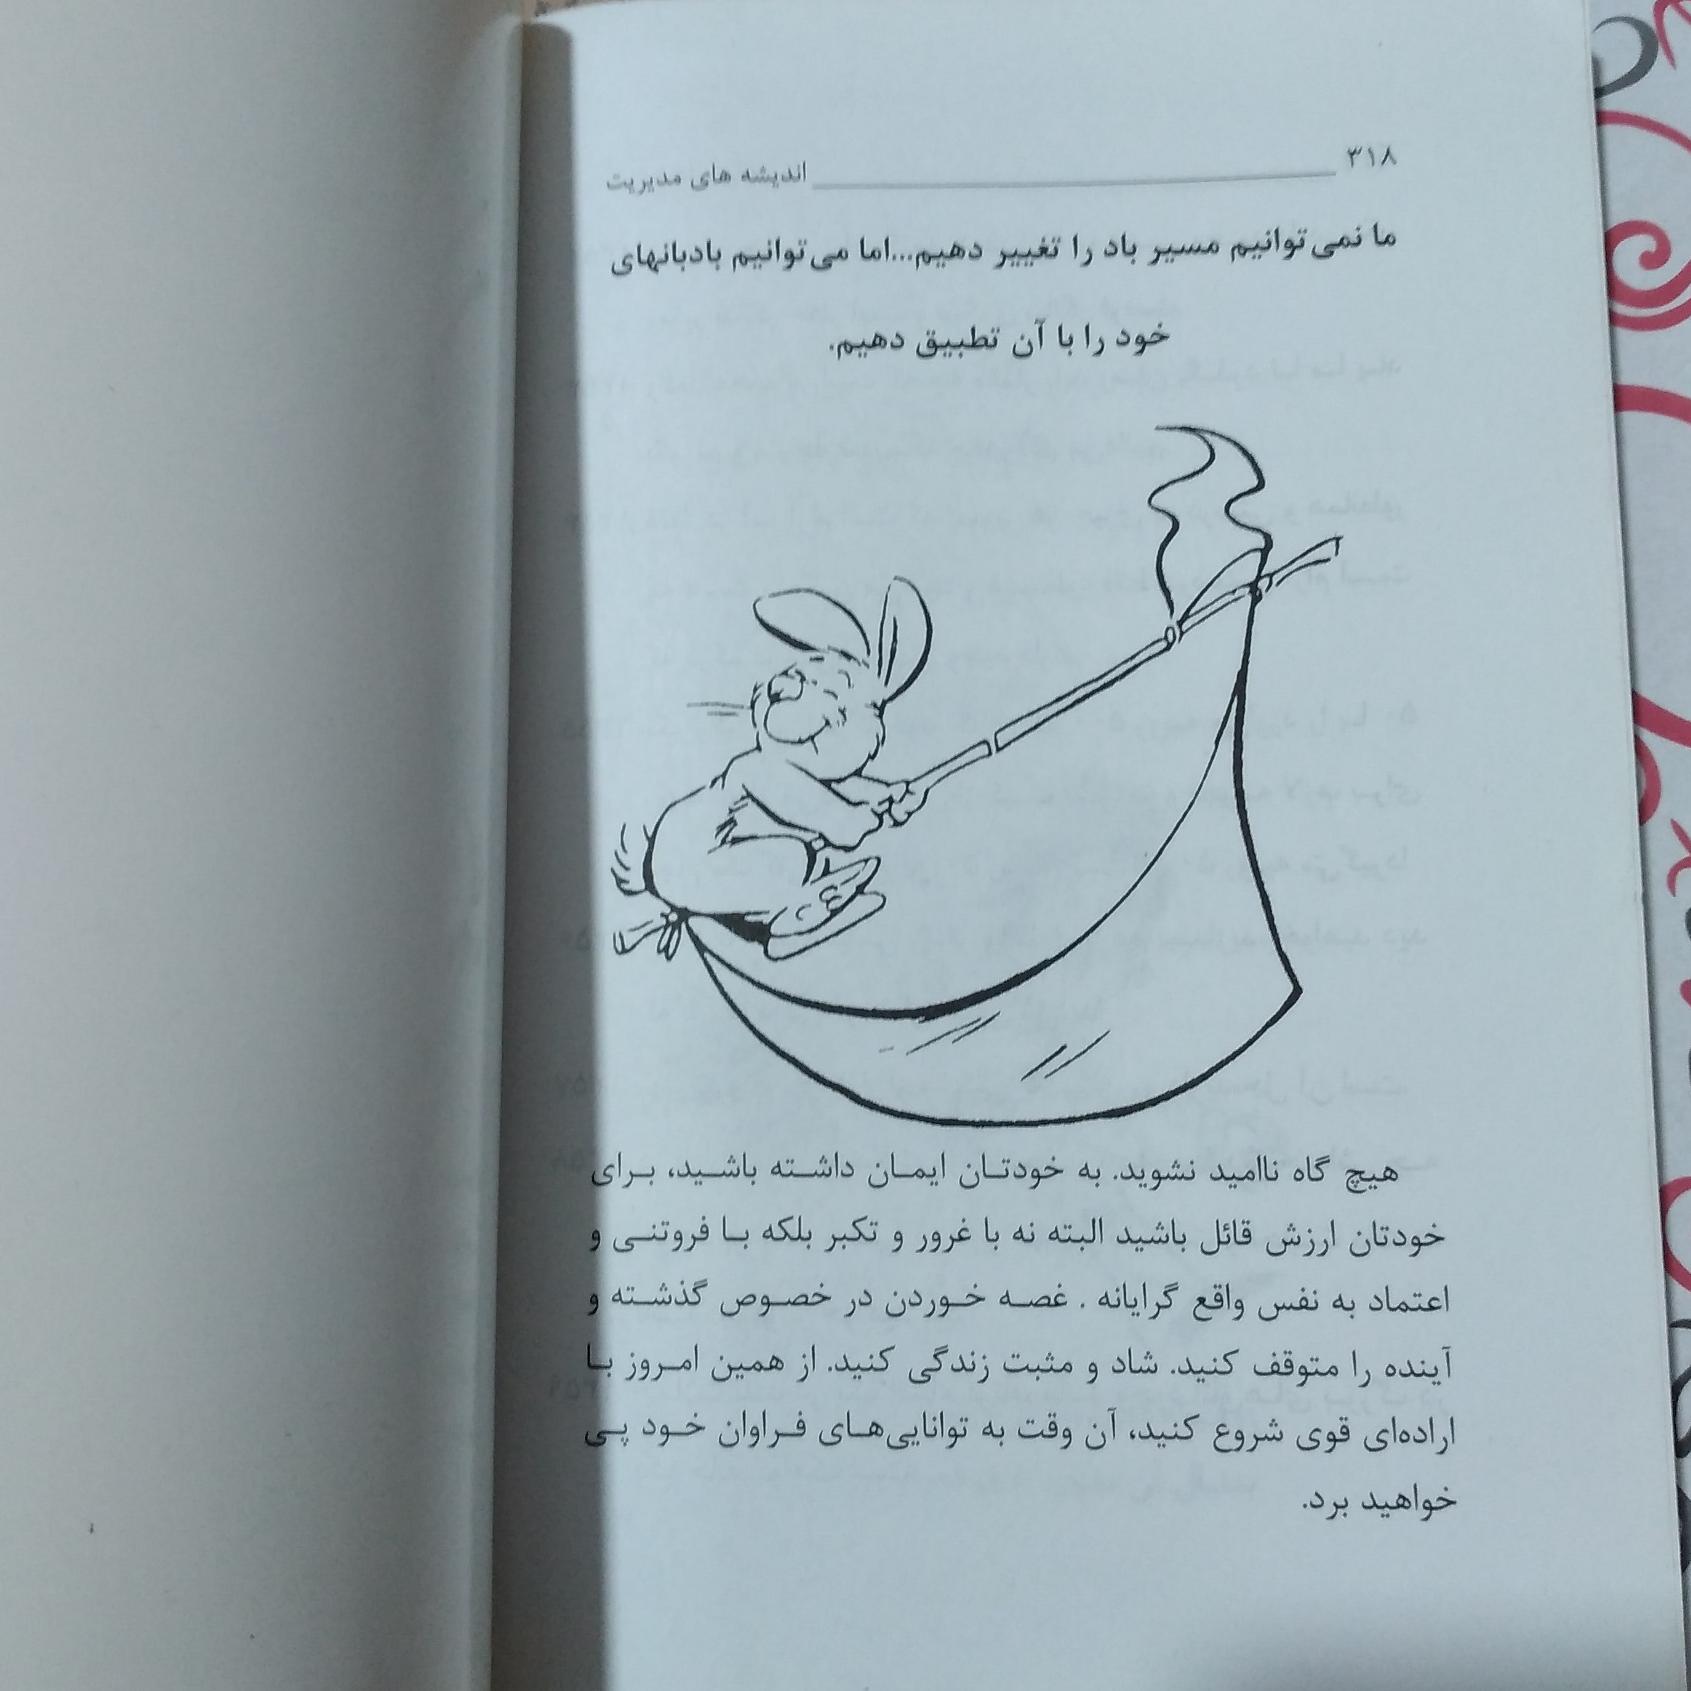 ۳۱۸ اندیشه های مدیریت
ما نمی‌توانیم مسیر باد را تغییر دهیم...اما می‌توانیم بادبانهای
خود را با آن تطبیق دهیم.
هیچ گاه ناامید نشوید. به خودتان ایمان داشته باشید، برای
خودتان ارزش قائل باشید البته نه با غرور و تکبر بلکه با فروتنی و
اعتماد به نفس واقع گرایانه . غصه خوردن در خصوص گذشته و
آینده را متوقف کنید. شاد و مثبت زندگی کنید. از همین امروز با
اراده‌ای قوی شروع کنید، آن وقت به توانایی‌های فراوان خود پی
خواهید برد.